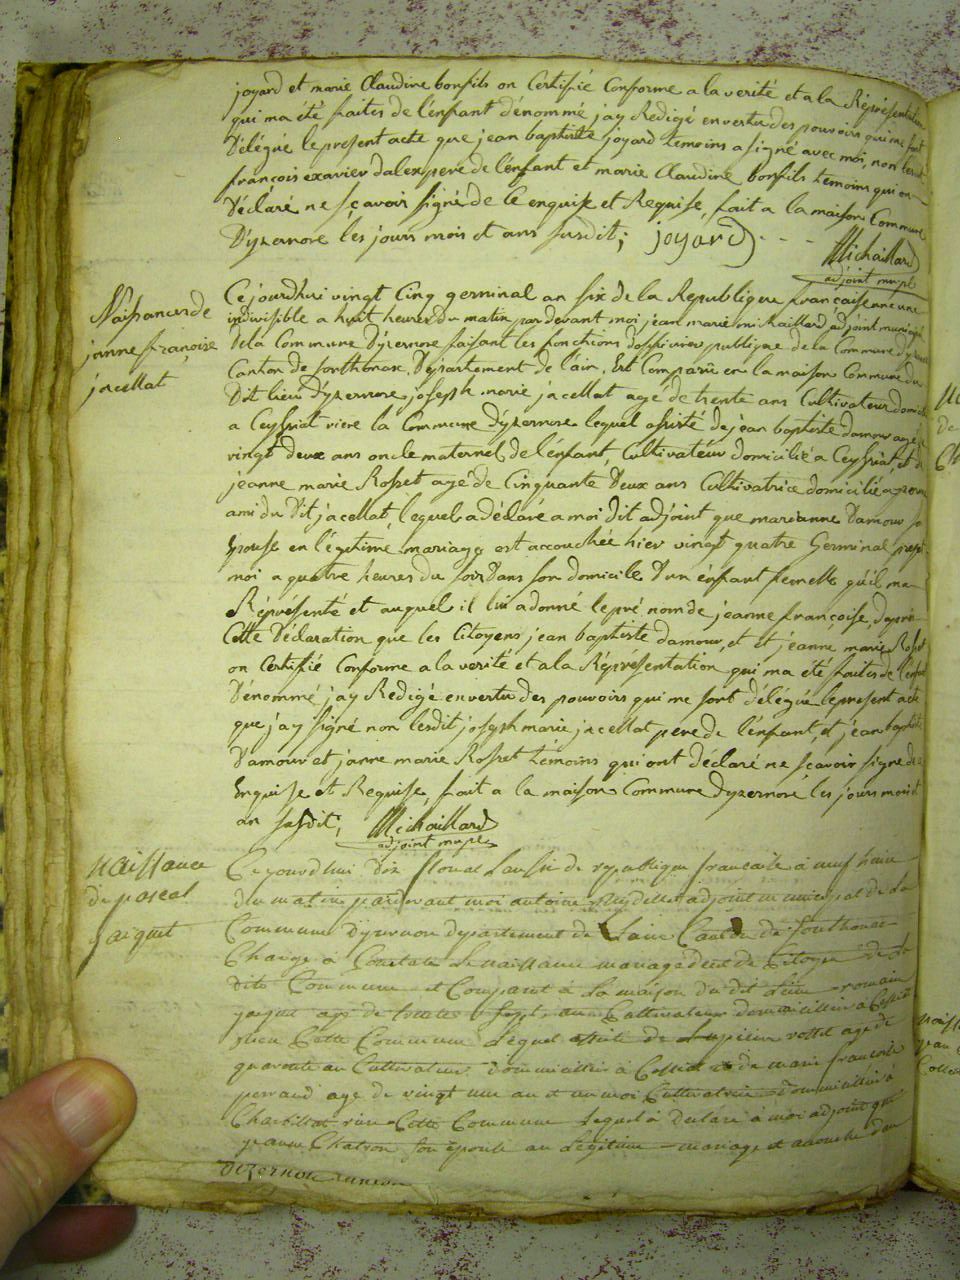 joyard et marie Claudine bonfils on Certifié Conforme a la verité et a la Réprésentation
qui ma été faites de l'enfant dénommé jay Redigé en vertu des pouvoirs qui me sont
Délégué le present acte que jean baptiste joyard temoins a signé avec moi, non
françois exavier dalex pere de l'enfant et marie Claudine bonfils temoins qui on
Déclaré ne sçavoir signé de ce enquise et Requise, fait a la maison Commune
D'yzernore les jours mois et ans susdit; joyard
Michaillard
adjoint mupl
Naissances de
janne françoise
jacellat
Ce jourdhui vingt Cinq germinal an six de la Republique françaisenne une
indivisible a huit heures du matin par devant moi jean marie michaillard adjoint municipal
de la Commune d'yzernore faisant les fonctions d'officier publique de la Commune
Canton de Sonthonax, Département de l'ain, Est Comparu en la maison Commune du
Dit lieu d'yzernore joseph marie jacellat age de trente ans Cultivateur domicilié
a Ceyssiat riere la Commune d'yzernore lequel assisté de jean baptiste damour agé
vingt deux ans oncle maternel de l'enfant Cultivateur domicilié a Ceyssiat, et de
jeanne marie Rosset agé de Cinquante Deux ans Cultivatrice domicilié
ami du Dit jacellat, lequel a déclaré a moi Dit adjoint que marianne Damour
Epouse en légitime mariage est accouchée hier vingt quatre Germinal present
moi a quatre heures du soir Dans son domicile D'un énfant femelle qu'il ma
Réprésenté et auquel il lui a donné le pré nom de jeanne françoise, d'après
Cette Déclaration que les Citoyens jean baptiste damour, et et jeanne marie Rosset
on Certifié Conforme a la verité et a la Réprésentation qui ma été faites de l'enfant
Dénommé jay Redigé en vertu des pouvoirs qui me sont délégué le present acte
que jay signé non lesdit joseph marie jacellat pere de l'enfant, et jean baptiste
Damour et janne marie Rosset témoins qui ont déclaré ne sçavoir signe de
Enquise et Requise, fait a la maison Commune Dyzernore les jours mois et
an susdit; Michaillard
adjoint mupl
naissance
de pascal
jaiquet
Ce jourdhui dix floreal de republique francaise à neuf heure
du matin pardevant moi antoine adjoint municipal de la
Commune d'yzernore departement de Lain Canton de Sonthonax
Charge à Constate Le naissance mariage decet de Citoyen de la
dite Commune et Comparut à La maison du dit Lieu romain
jaiquet age de trentes sept an Cultivateur domicillier à
rieu Cette Commune Lequel assite de rosset age de
quarante an Cultivateur domicillier à et de marie francoise
perraud age de vingt une an et un moi Cultivatrice domicillier à
rieu Cette Commune Lequel à Declare à moi adjoint que
jeanne Chatron son epouse au Legitime mariage et acouche dun
Dizernore